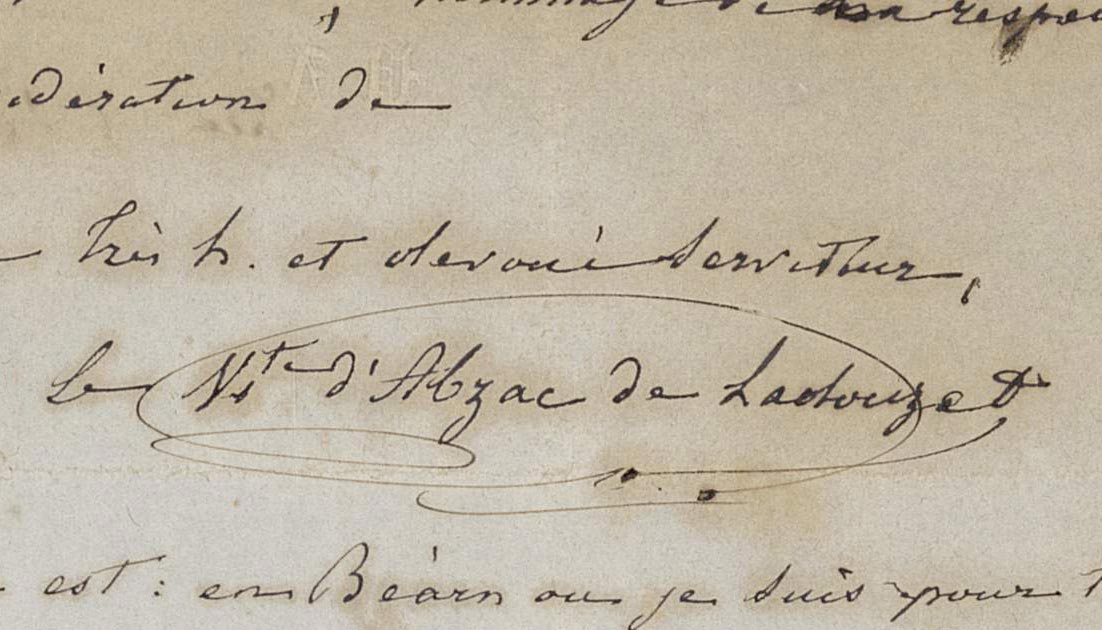 , hommage de ma respec
dération de
très h. et devoué serviteur,
le Vte d'Abzac de Ladouze
est : en Béarn ou je suis pour